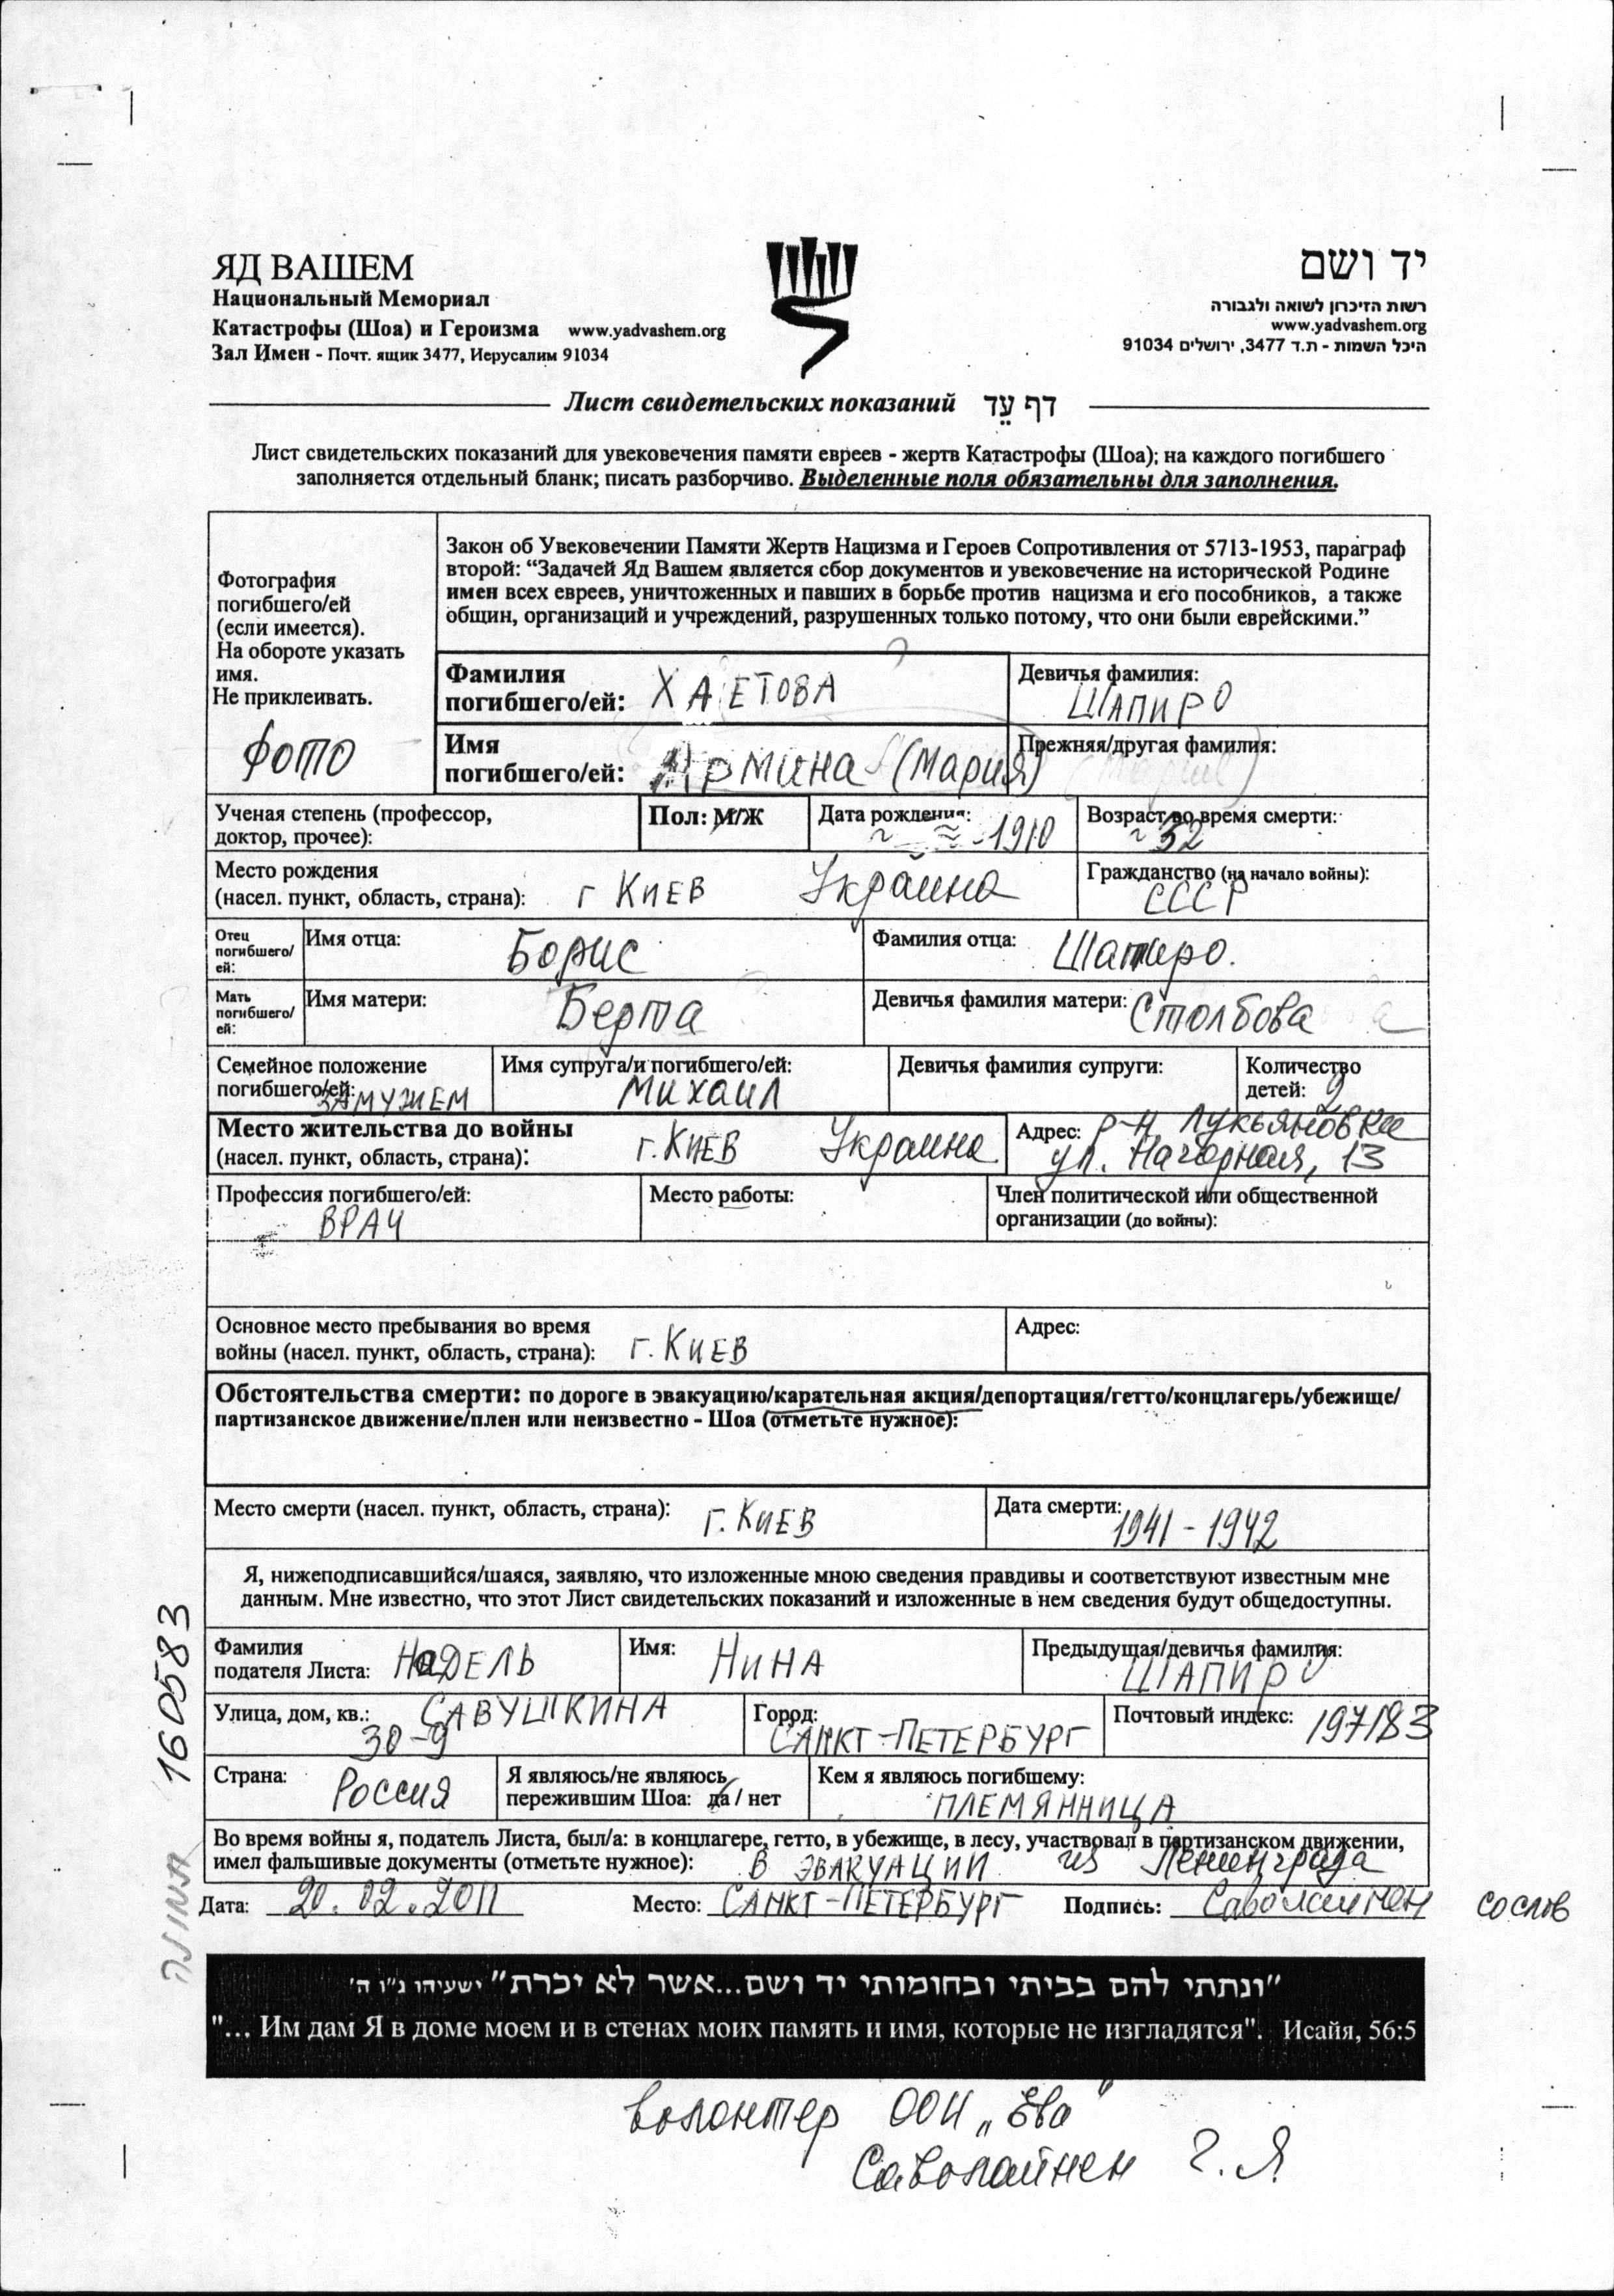 ЯД ВАШЕМ
Национальный Мемориал
Катастрофы (Шоа) и Героизма www.yadvashem.org
Зал Имен - Почт. ящик 3477, Иерусалим 91034
יד ושם
רשות הזיכרון לשואה ולגבורה
www.yadvashem.org
היכל השמות - ת.ד 3477, ירושלים 91034
Лист свидетельских показаний דף עֵד
Лист свидетельских показаний для увековечения памяти евреев - жертв Катастрофы (Шоа); на каждого погибшего
заполняется отдельный бланк; писать разборчиво. Выделенные поля обязательны для заполнения.
Фотография
погибшего/ей
(если имеется).
На обороте указать
имя.
Не приклеивать.
ФОТО
Закон об Увековечении Памяти Жертв Нацизма и Героев Сопротивления от 5713-1953, параграф
второй: “Задачей Яд Вашем является сбор документов и увековечение на исторической Родине
имен всех евреев, уничтоженных и павших в борьбе против нацизма и его пособников, а также
общин, организаций и учреждений, разрушенных только потому, что они были еврейскими.”
Фамилия
погибшего/ей: ХАЕТОВА
Девичья фамилия:
ШАПИРО
Имя
погибшего/ей: Армина (Мария)
Прежняя/другая фамилия:
Ученая степень (профессор,
доктор, прочее):
Пол: М/Ж
Дата рождения:
1910
Возраст во время смерти:
~ 32
Место рождения
(насел. пункт, область, страна): г КИЕВ Украина
Гражданство (на начало войны):
СССР
Отец
погибшего/
ей:
Имя отца: Борис
Фамилия отца: Шапиро.
Мать
погибшего/
ей:
Имя матери: Берта
Девичья фамилия матери: Столбова
Семейное положение
погибшего/ей: ЗАМУЖЕМ
Имя супруга/и погибшего/ей:
МИХАИЛ
Девичья фамилия супруги:
Количество
детей: 2
Место жительства до войны
(насел. пункт, область, страна): г. КИЕВ Украина
Адрес: р-н Лукьяновка
ул. Нагорная, 13
Профессия погибшего/ей:
ВРАЧ
Место работы:
Член политической или общественной
организации (до войны):
Основное место пребывания во время
войны (насел. пункт, область, страна): г. КИЕВ
Адрес:
Обстоятельства смерти: по дороге в эвакуацию/карательная акция/депортация/гетто/концлагерь/убежище/
партизанское движение/плен или неизвестно - Шоа (отметьте нужное):
Место смерти (насел. пункт, область, страна): г. КИЕВ
Дата смерти:
1941 - 1942
Я, нижеподписавшийся/шаяся, заявляю, что изложенные мною сведения правдивы и соответствуют известным мне
данным. Мне известно, что этот Лист свидетельских показаний и изложенные в нем сведения будут общедоступны.
Фамилия
подателя Листа: НАДЕЛЬ
Имя: НИНА
Предыдущая/девичья фамилия:
ШАПИРО
Улица, дом, кв.: САВУШКИНА
30-9
Город:
САНКТ-ПЕТЕРБУРГ
Почтовый индекс: 197183
Страна: РОССИЯ
Я являюсь/не являюсь
пережившим Шоа: да / нет
Кем я являюсь погибшему:
ПЛЕМЯННИЦА
Во время войны я, податель Листа, был/а: в концлагере, гетто, в убежище, в лесу, участвовал в партизанском движении,
имел фальшивые документы (отметьте нужное): В ЭВАКУАЦИИ из Ленинграда
Дата: 20.02.2011 Место: САНКТ-ПЕТЕРБУРГ Подпись: Саволайнен
160583
"ונתתי להם בביתי ובחומותי יד ושם...אשר לא יכרת" ישעיהו נ"ו ה'
"... Им дам Я в доме моем и в стенах моих память и имя, которые не изгладятся". Исайя, 56:5
волонтер ООИ „Ева"
Саволайнен Г. Я